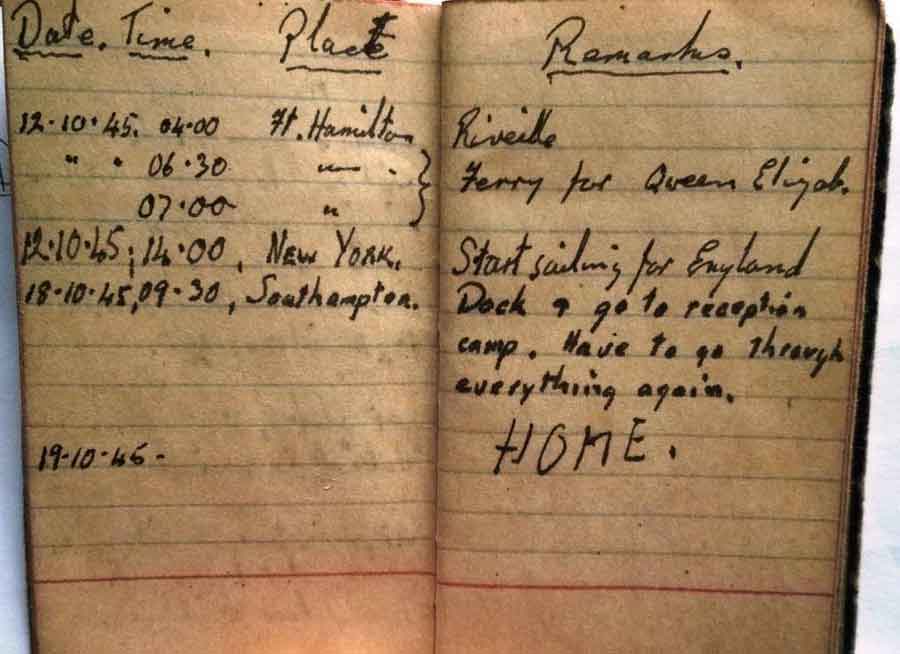 Date. Time. Place Remarks.
12.10.45. 04.00 Ft. Hamilton Riveille
" " 06.30 " Ferry for Queen Elizab.
07.00 "
12.10.45, 14.00, New York. Start sailing for England
18.10.45, 09.30, Southampton. Dock & go to reception
camp. Have to go through
everything again.
19-10-45- HOME.